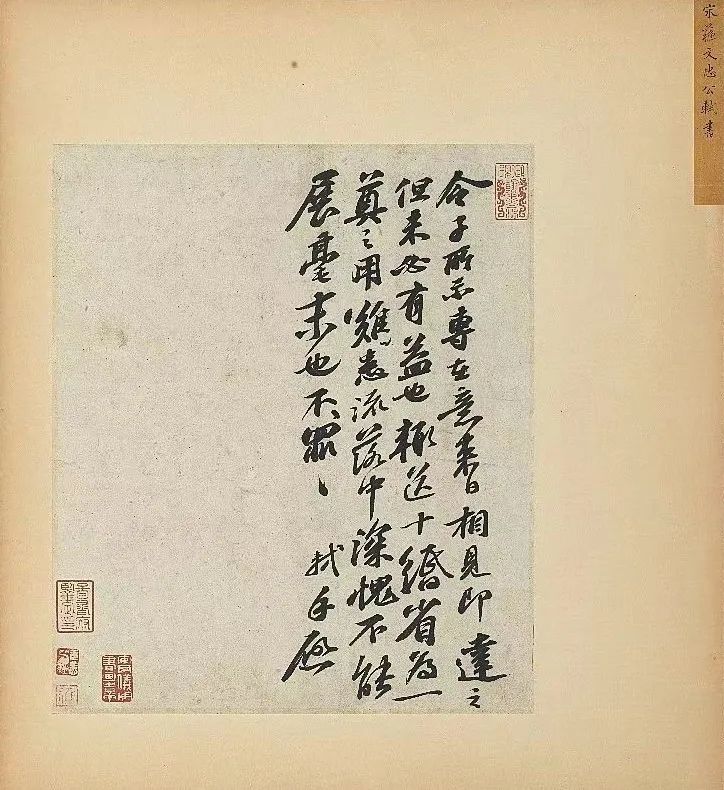 宋蘇文忠公軾書
令子所示專在意來日相見即達之
但未必有益也輒送十緡省為一
奠之用難患流落中深愧不能
展毫末也不罪〻 軾手啟